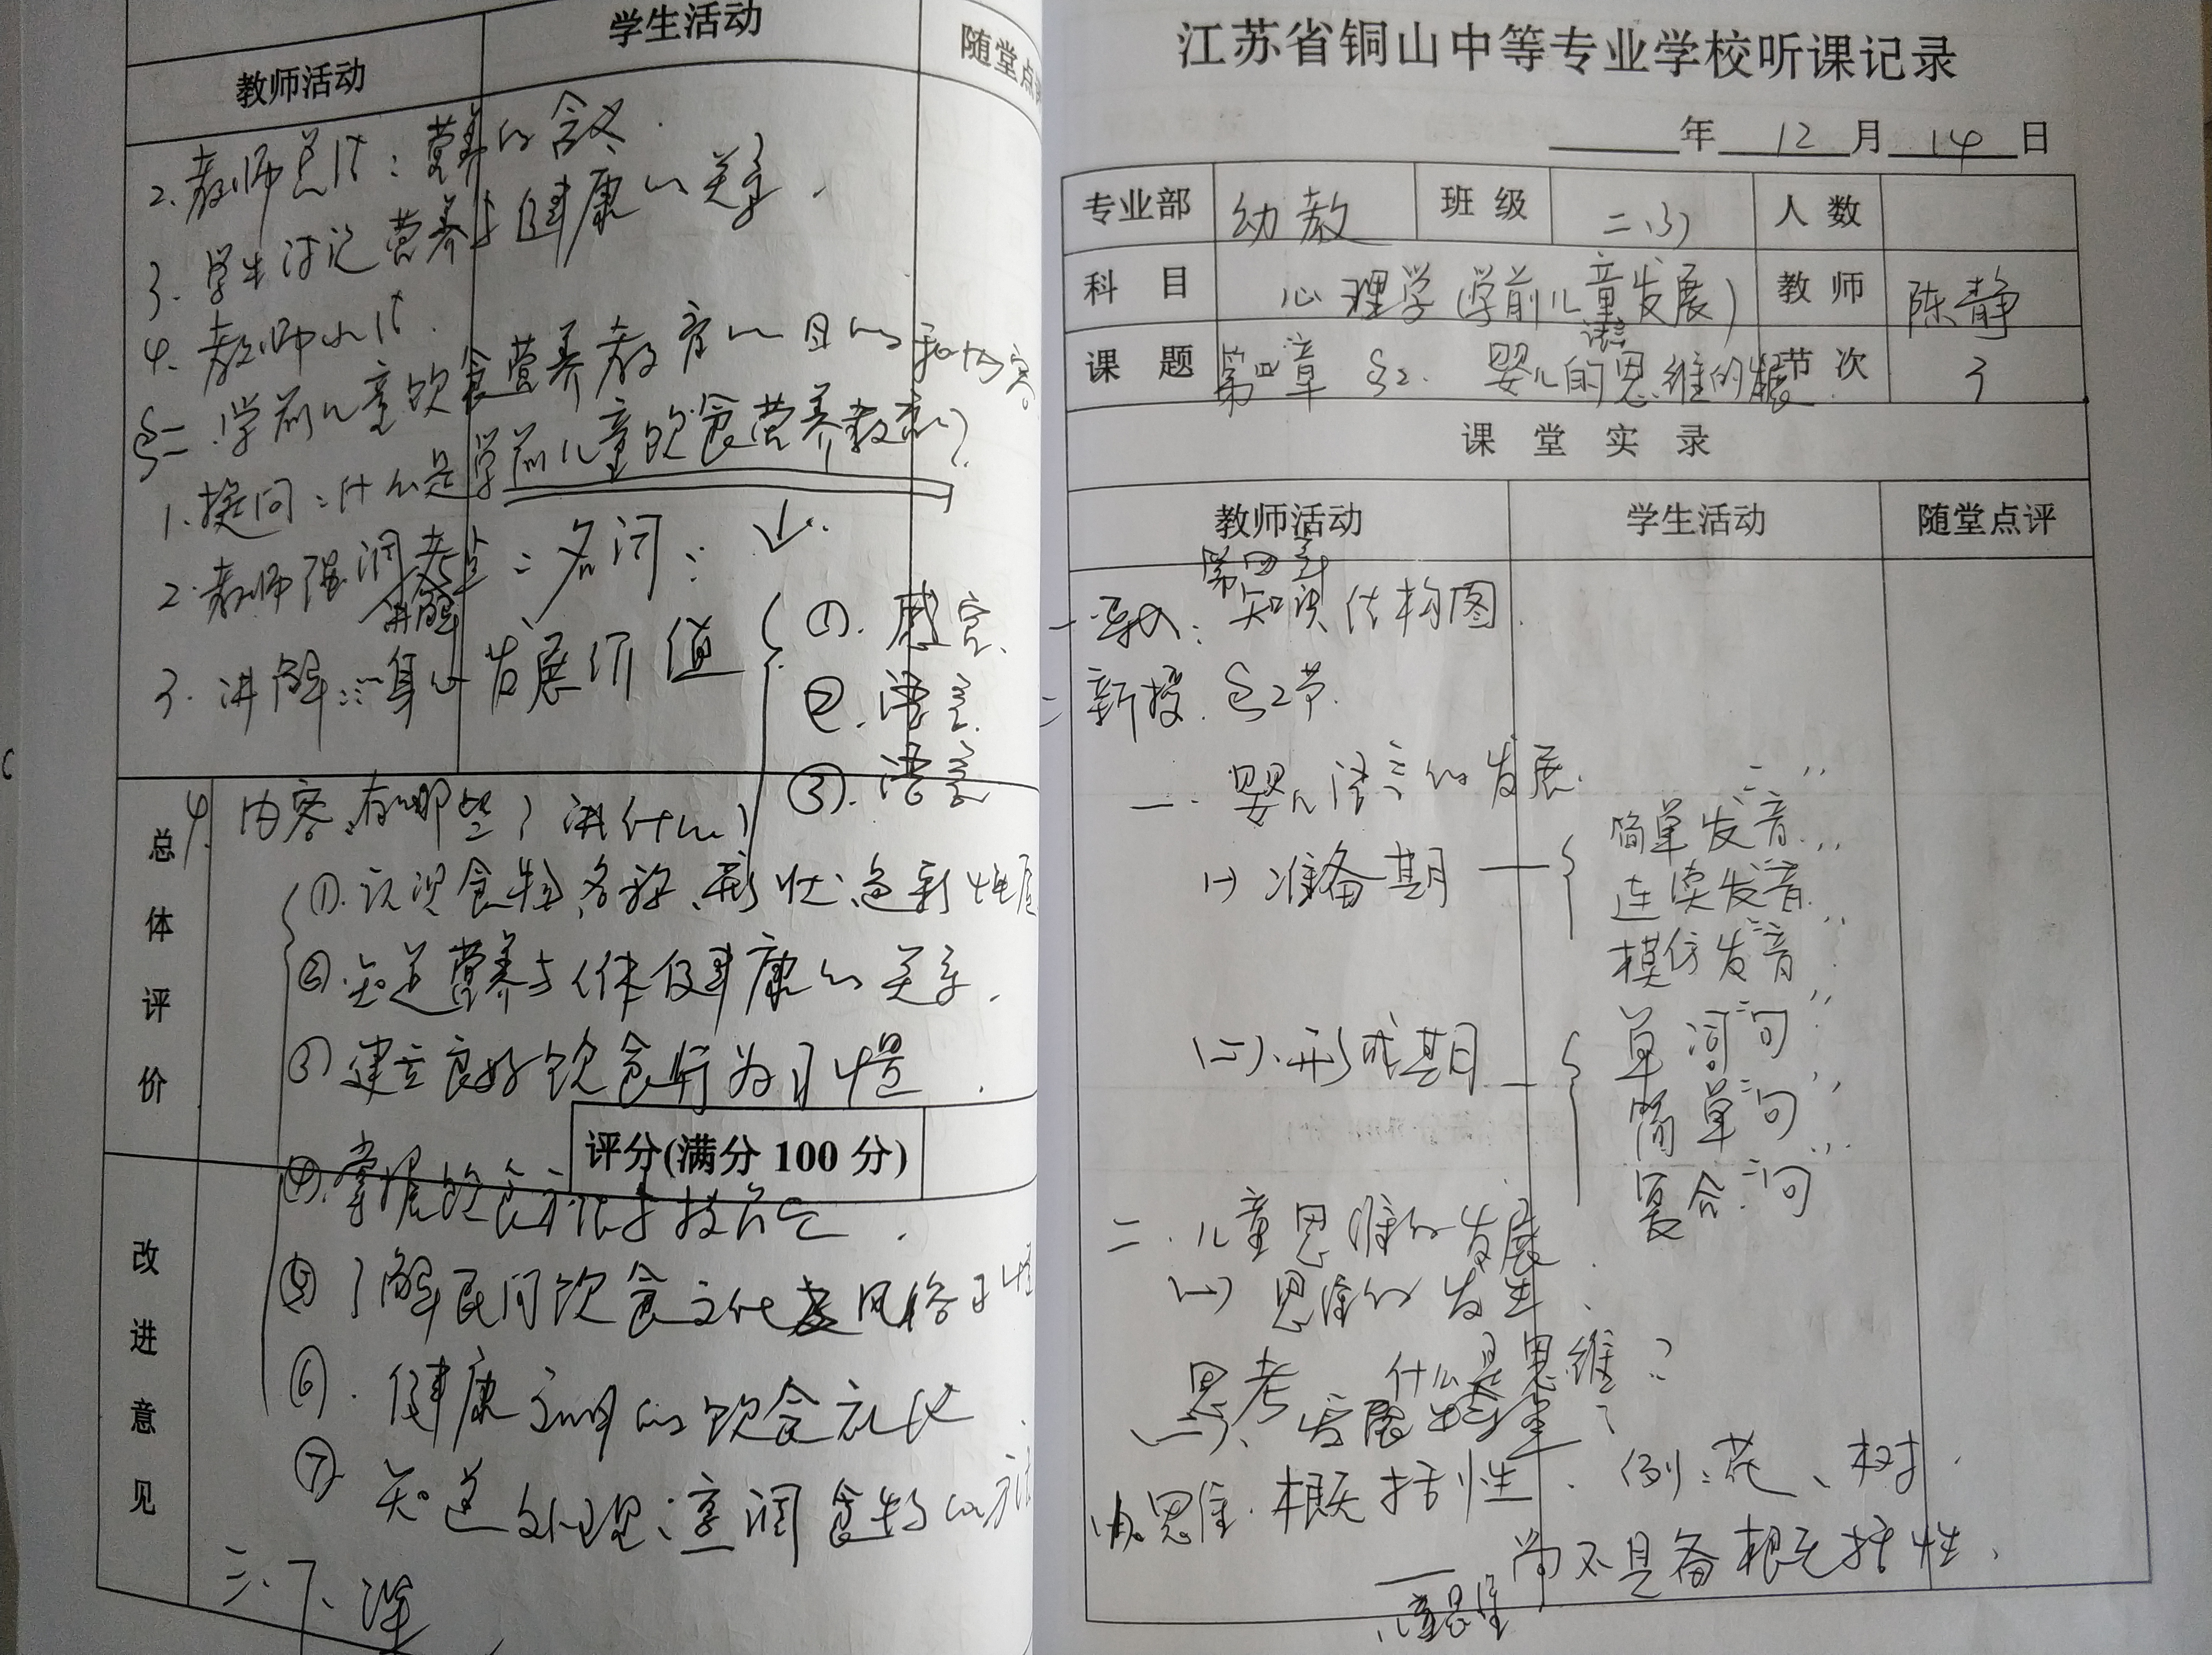 教师活动 学生活动 随堂点评
2. 教师总结：营养的含义.
3. 学生讨论营养与健康的关系.
4. 教师小结.
§二 学前儿童饮食营养教育的目的和内容.
1. 提问：什么是学前儿童饮食营养教育？
2. 教师强调考点：名词：↓.
讲解
3. 讲解：身心发展价值
①. 感官.
②. 语言.
③. 语言
总体评价
4. 内容有哪些？讲什么？
①. 认识食物名称、形状、色彩性质
②. 知道营养与人体健康的关系.
③ 建立良好饮食行为习惯.
评分(满分 100 分)
④. 掌握饮食方法与技能.
改进意见
⑤ 了解民间饮食文化及风俗习惯
⑥. 健康文明的饮食礼仪
⑦ 知道处理、烹调食物的方法
三. 下课
江苏省铜山中等专业学校听课记录
年 12 月 14 日
专业部 幼教 班级 二(3) 人数
科目 心理学(学前儿童发展) 教师 陈静
课题 第四章 §2. 婴儿的语言思维的发展 节次 3
课堂实录
教师活动 学生活动 随堂点评
第四章
一. 导入：知识结构图.
二 新授. §2节.
一. 婴儿语言的发展.
(一) 准备期 —
简单发音
连续发音
模仿发音
(二). 形成期 —
单词句
简单句
复合句
二. 儿童思维的发展.
(一) 思维的发生.
思考 什么是思维？
(二). 发展特点
思维. 概括性. 例：花、树.
尚不具备概括性.
儿童思维